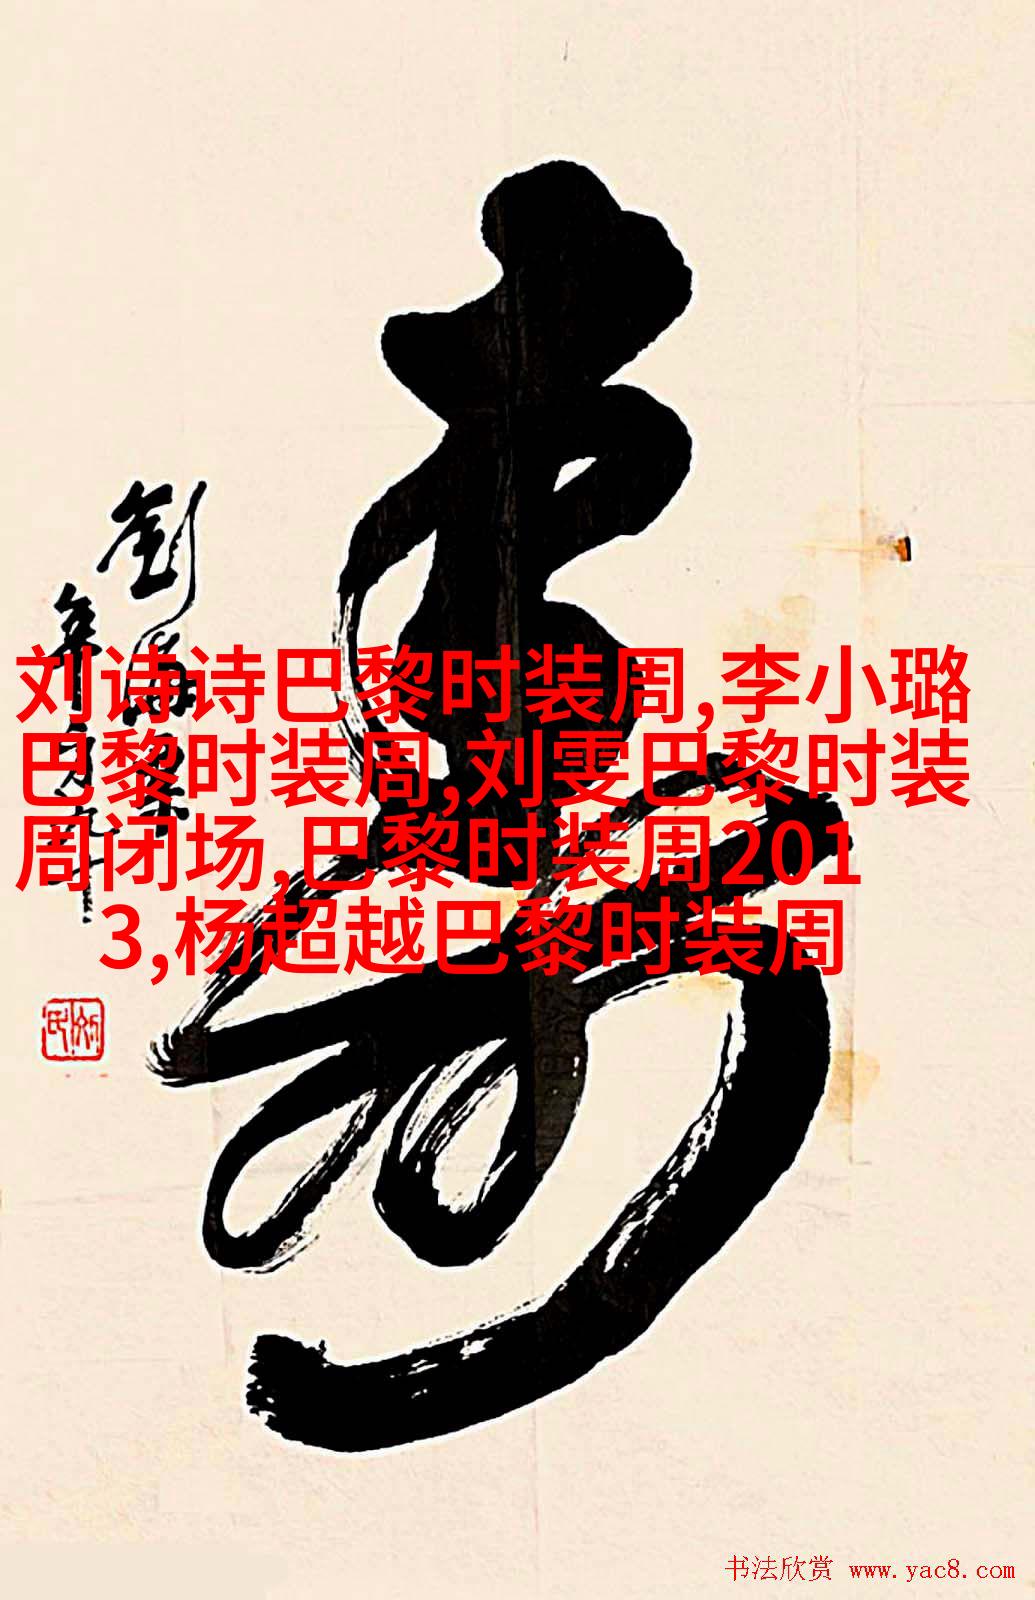 寿
刘诗诗巴黎时装周,李小璐
巴黎时装周,刘雯巴黎时装
周闭场,巴黎时装周201
3,杨超越巴黎时装周
书法欣赏 www.yac8.com